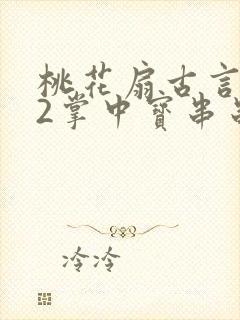 桃花扇古言
2掌中寳串
冷冷